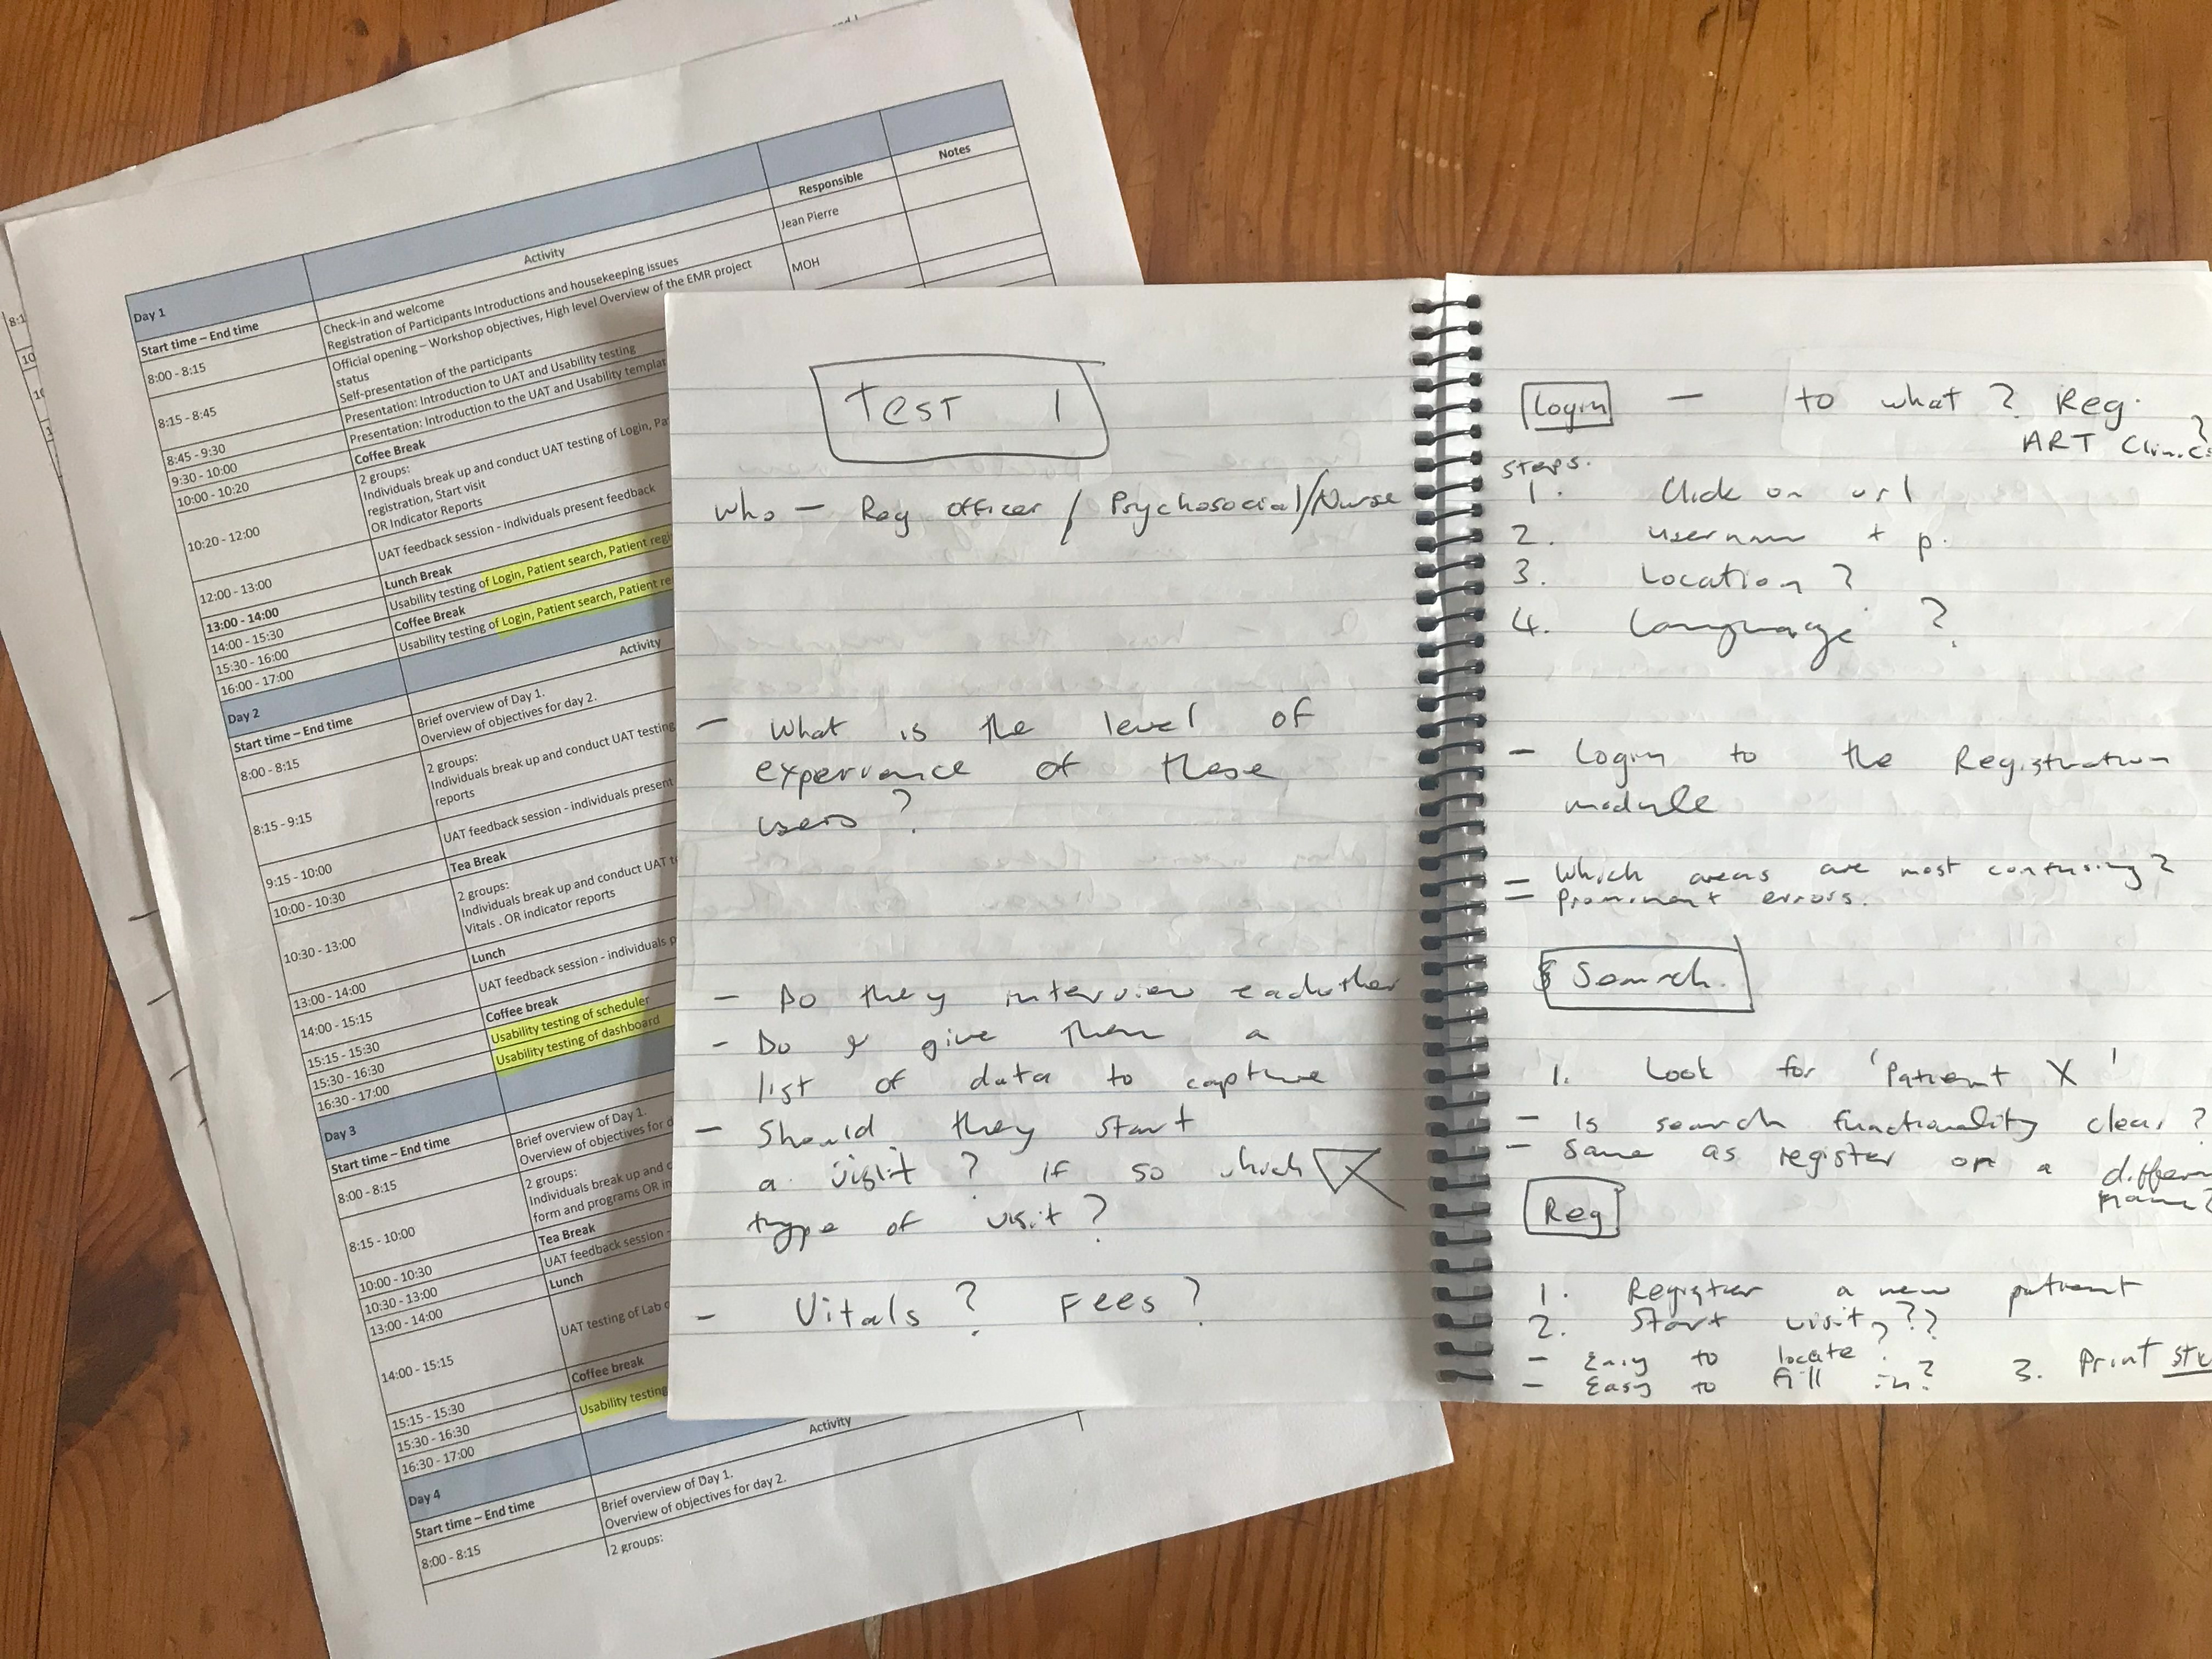 Day 1
Start time – End time
Activity
Responsible
Notes
8:00 - 8:15
Check-in and welcome
Registration of Participants Introductions and housekeeping issues
Jean Pierre
8:15 - 8:45
Official opening – Workshop objectives, High level Overview of the EMR project
status
MOH
8:45 - 9:30
Self-presentation of the participants
9:30 - 10:00
Presentation: Introduction to UAT and Usability testing
Presentation: Introduction to the UAT and Usability
10:00 - 10:20
Coffee Break
10:20 - 12:00
2 groups:
Individuals break up and conduct UAT testing of Login,
registration, Start visit
OR Indicator Reports
12:00 - 13:00
UAT feedback session - individuals present feedback
13:00 - 14:00
Lunch Break
14:00 - 15:30
Usability testing of Login, Patient search, Patient
15:30 - 16:00
Coffee Break
16:00 - 17:00
Usability testing of Login, Patient search, Patient
Day 2
Start time – End time
Activity
8:00 - 8:15
Brief overview of Day 1.
Overview of objectives for day 2.
8:15 - 9:15
2 groups:
Individuals break up and conduct UAT testing
reports
9:15 - 10:00
UAT feedback session - individuals present
10:00 - 10:30
Tea Break
10:30 - 13:00
2 groups:
Individuals break up and conduct UAT
Vitals . OR indicator reports
13:00 - 14:00
Lunch
14:00 - 15:15
UAT feedback session - individuals
15:15 - 15:30
Coffee break
15:30 - 16:30
Usability testing of scheduler
16:30 - 17:00
Usability testing of dashboard
Day 3
Start time – End time
8:00 - 8:15
Brief overview of Day 1.
Overview of objectives for
8:15 - 10:00
2 groups:
Individuals break up and
form and programs OR
10:00 - 10:30
Tea Break
10:30 - 13:00
UAT feedback session -
13:00 - 14:00
Lunch
14:00 - 15:15
UAT testing of Lab
15:15 - 15:30
Coffee break
15:30 - 16:30
Usability testing
16:30 - 17:00
Day 4
Start time – End time
Activity
8:00 - 8:15
Brief overview of Day 1.
Overview of objectives for day 2.
2 groups:
Test 1
who – Reg officer / Psychosocial/Nurse
- What is the level of
experience of these
users?
- Do they interview eachother
- Do I give them a
list of data to capture
- Should they start
a visit? If so which
type of visit?
- Vitals? Fees?
Login — to what? Reg.
ART Clinic?
Steps.
1. Click on url
2. username + p.
3. Location?
4. Language?
- Login to the Registration
module
- Which areas are most confusing?
- Prominent errors.
Search.
1. Look for 'Patient X'
- Is search functionality clear?
- Same as register or a
Reg
1. Register a new patient
2. Start visit???
- Easy to locate.
- Easy to fill in?
3. Print